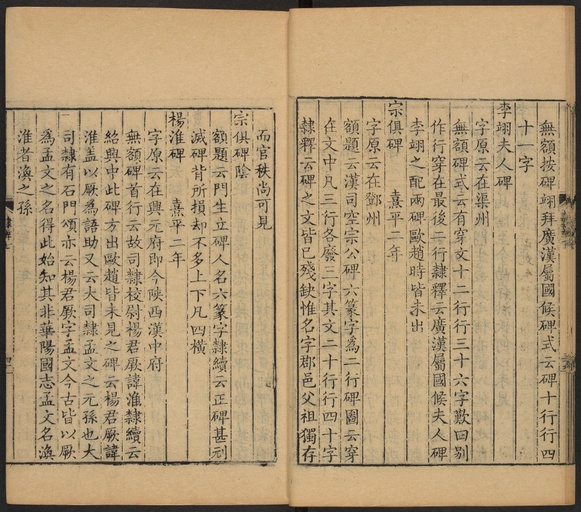 無額按碑翊拜廣漢屬國候碑式云碑十行行四
十一字
李翊夫人碑
字原云在渠州
無額碑式云有穿文十二行行三十六字歎曰別
作行穿在最後二行隸釋云廣漢屬國候夫人碑
李翊之配兩碑歐趙時皆未出
宗俱碑 熹平二年
字原云在鄧州
額題云漢司空宗公碑六篆字為二行碑圖云穿
在文中凡三行各廢三字其文二十行行四十字
隸釋云碑之文皆已殘缺惟名字郡邑父祖獨存
而官秩尚可見
宗俱碑陰
額題云門生立碑人名六篆字隸續云正碑甚刓
滅碑背所損却不多上下凡四橫
楊淮碑 熹平二年
字原云在興元府即今陝西漢中府
無額碑首行云故司隸校尉楊君厥諱淮隸續云
紹興中此碑方出歐趙皆未見之碑云楊君厥諱
淮盖以厥為語助又云大司隸孟文之元孫也大
司隸有石門頌亦云楊君厥字孟文今古皆以厥
為孟文之名得此始知其非華陽國志孟文名渙
淮者渙之孫